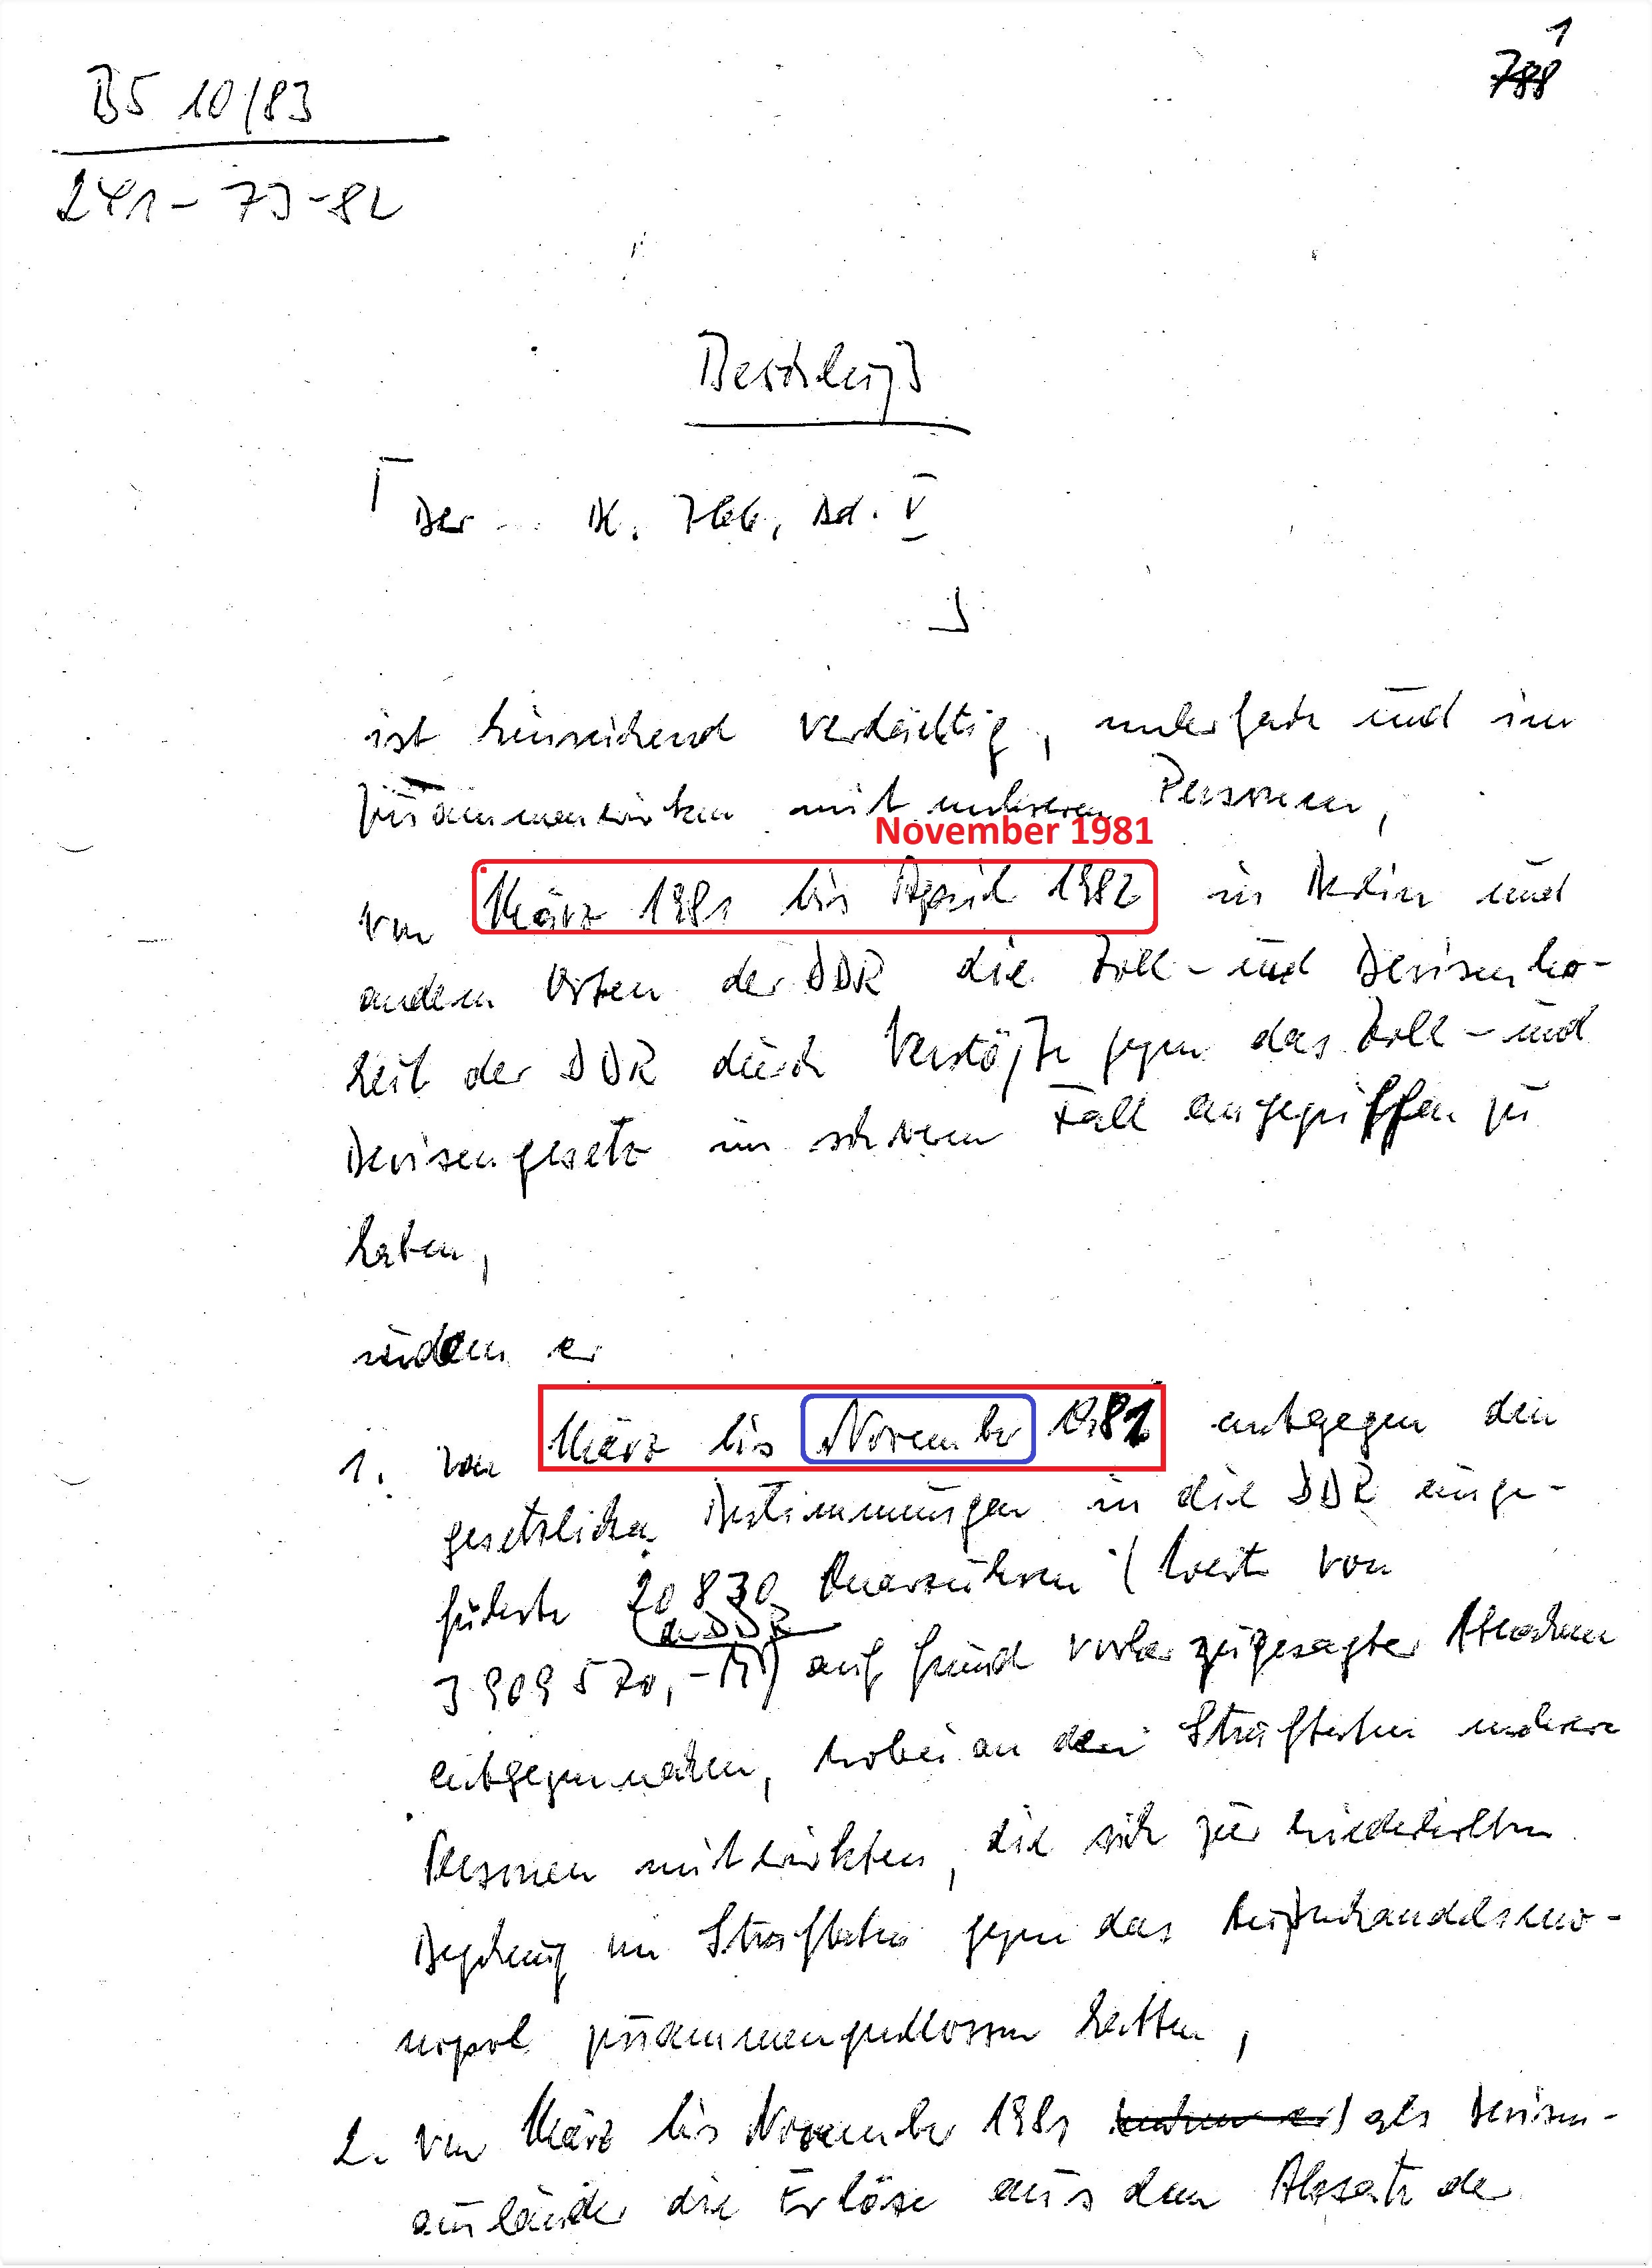 1
788
BS 10/83
241-73-82
Beschluß
Der ... K. 766, Bd. V
ist hinreichend verdächtig, mehrfach und im
Zusammenwirken mit mehreren Personen,
November 1981
von März 1981 bis April 1982 in Berlin und
andern Orten der DDR die Zoll- und Devisenho-
heit der DDR durch Verstöße gegen das Zoll- und
Devisengesetz im schweren Fall angegriffen zu
haben,
indem er
1. von März bis November 1981 entgegen den
gesetzlichen Bestimmungen in die DDR einge-
führte 20 830 Quarzuhren (Wert von
(der DDR
3 909 570,- M) auf Grund vorher zugesagter Abnahme
entgegennahm, wobei an den Straftaten mehrere
Personen mitwirkten, die sich zur wiederholten
Begehung von Straftaten gegen das Außenhandelsmo-
nopol zusammengeschlossen hatten,
2. von März bis November 1981 als Devisen-
ausländer die Erlöse aus dem Absatz der